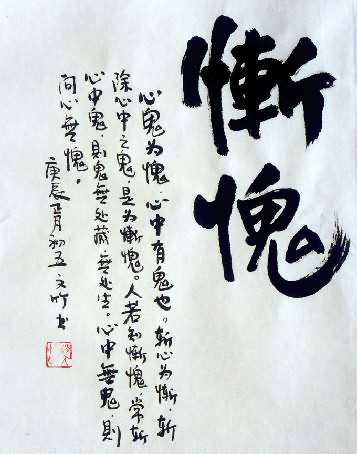 慚愧
心鬼为愧,心中有鬼也。斬心为慚,斬
除心中之鬼,是为慚愧。人若知慚愧,常斬
心中鬼,則鬼無处藏,無处生。心中無鬼,則
问心無愧。
庚辰正月初五文竹书